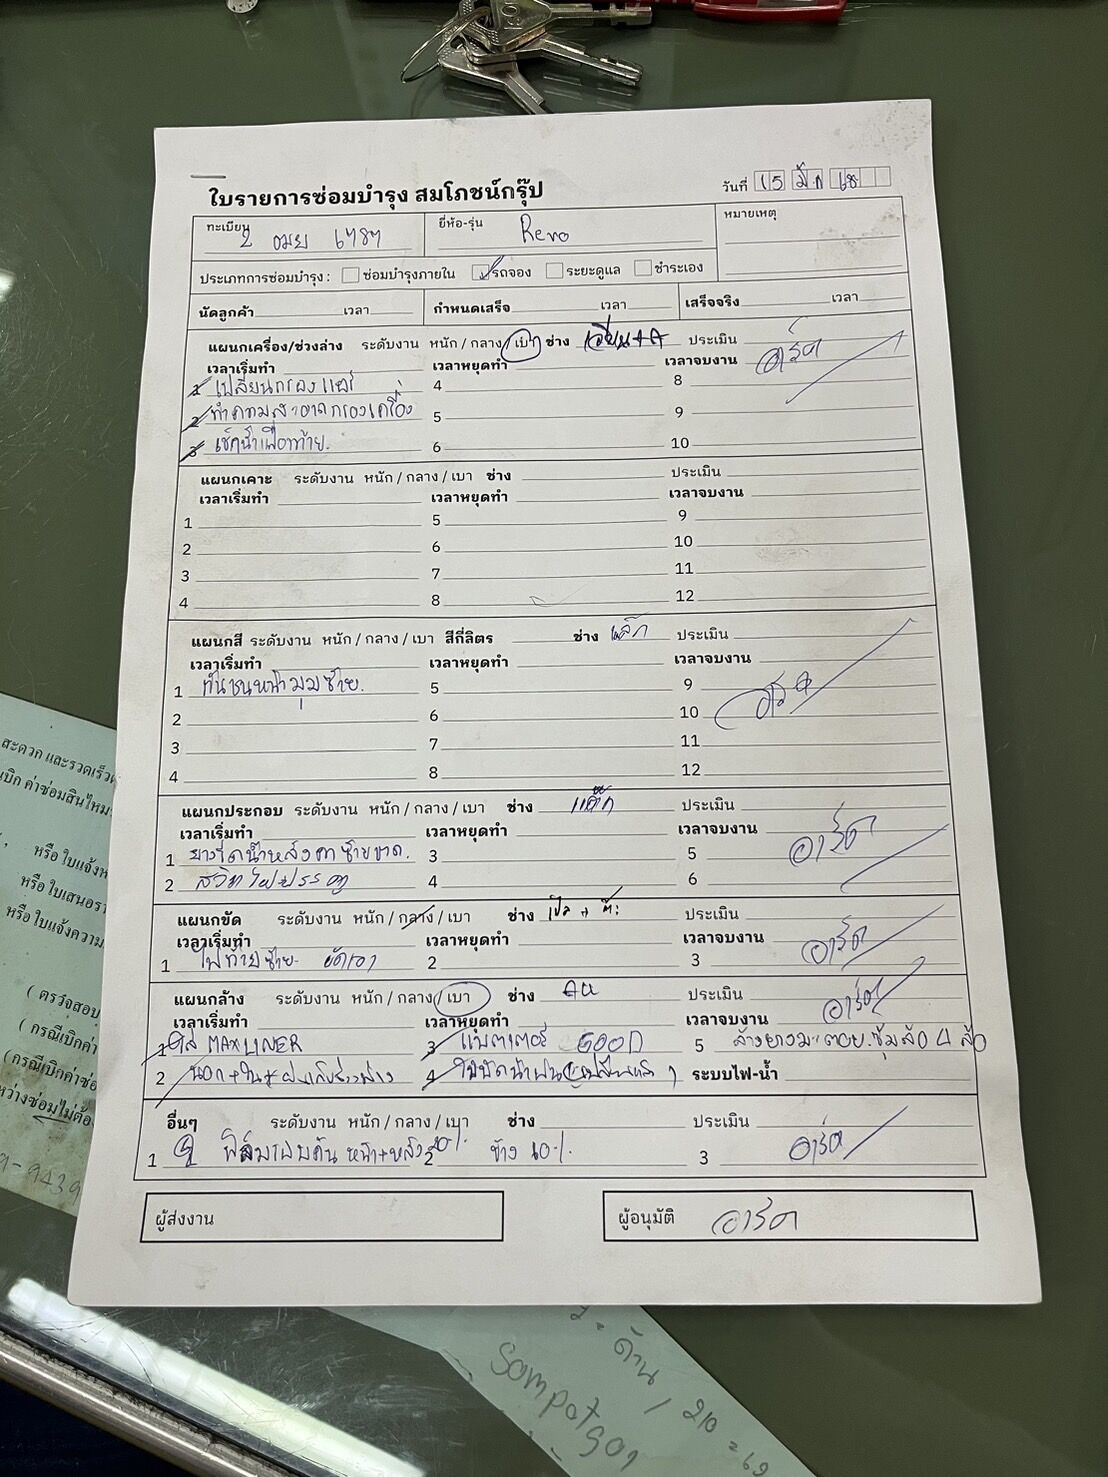 ใบรายการซ่อมบำรุง สมโภชน์กรุ๊ป
วันที่ 15 มี.ค 68
ทะเบียน 2 ฒย 6787
ยี่ห้อ-รุ่น Revo
หมายเหตุ
ประเภทการซ่อมบำรุง : ซ่อมบำรุงภายใน รถจอง ระยะดูแล ชำระเอง
นัดลูกค้า เวลา กำหนดเสร็จ เวลา เสร็จจริง เวลา
แผนกเครื่อง/ช่วงล่าง ระดับงาน หนัก / กลาง / เบา ช่าง ประเมิน
เวลาเริ่มทำ เวลาหยุดทำ เวลาจบงาน อาร์ต
1 เปลี่ยนกรองแอร์ 4 8
2 ทำความสะอาดกรองเครื่อง 5 9
3 เช็คน้ำเฟืองท้าย. 6 10
แผนกเคาะ ระดับงาน หนัก / กลาง / เบา ช่าง ประเมิน
เวลาเริ่มทำ เวลาหยุดทำ เวลาจบงาน
1 5 9
2 6 10
3 7 11
4 8 12
แผนกสี ระดับงาน หนัก / กลาง / เบา สีกี่ลิตร ช่าง เหล็ก ประเมิน
เวลาเริ่มทำ เวลาหยุดทำ เวลาจบงาน
1 กันชนหน้ามุมซ้าย. 5 9
2 6 10 อาร์ต
3 7 11
4 8 12
แผนกประกอบ ระดับงาน หนัก / กลาง / เบา ช่าง ประเมิน
เวลาเริ่มทำ เวลาหยุดทำ เวลาจบงาน
1 ยางรีดน้ำหลังคาซ้ายขาด. 3 5 อาร์ต
2 สวิท 4 6
แผนกขัด ระดับงาน หนัก / กลาง / เบา ช่าง ประเมิน
เวลาเริ่มทำ เวลาหยุดทำ เวลาจบงาน อาร์ต
1 ไฟท้ายซ้าย ขัดเงา 2 3
แผนกล้าง ระดับงาน หนัก / กลาง / เบา ช่าง ประเมิน
เวลาเริ่มทำ เวลาหยุดทำ เวลาจบงาน อาร์ต
1 ใส่ MAXLINER 3 แบตเตอร์ GOOD 5 ล้างยางมะตอย.ซุ้มล้อ 4 ล้อ
2 นอก+ใน+ 4 ใบปัดน้ำฝน (เปลี่ยนแล้ว) ระบบไฟ-น้ำ
อื่นๆ ระดับงาน หนัก / กลาง / เบา ช่าง ประเมิน
1 ฟิล์มรอบคัน หน้า+หลัง 2 ข้าง 60% 3 อาร์ต
ผู้ส่งงาน
ผู้อนุมัติ อาร์ต
สะดวก และรวดเร็ว
เบิก ค่าซ่อมสินไหม
หรือ ใบแจ้ง
หรือ ใบเสนอรา
หรือ ใบแจ้งความ
( ตรวจสอบ
( กรณีเบิกค่า
(กรณีเบิกค่าซ่อ
หว่างซ่อมไม่ต้อ
-9439
2. ด้าน / 210 = 62
Sompotgon